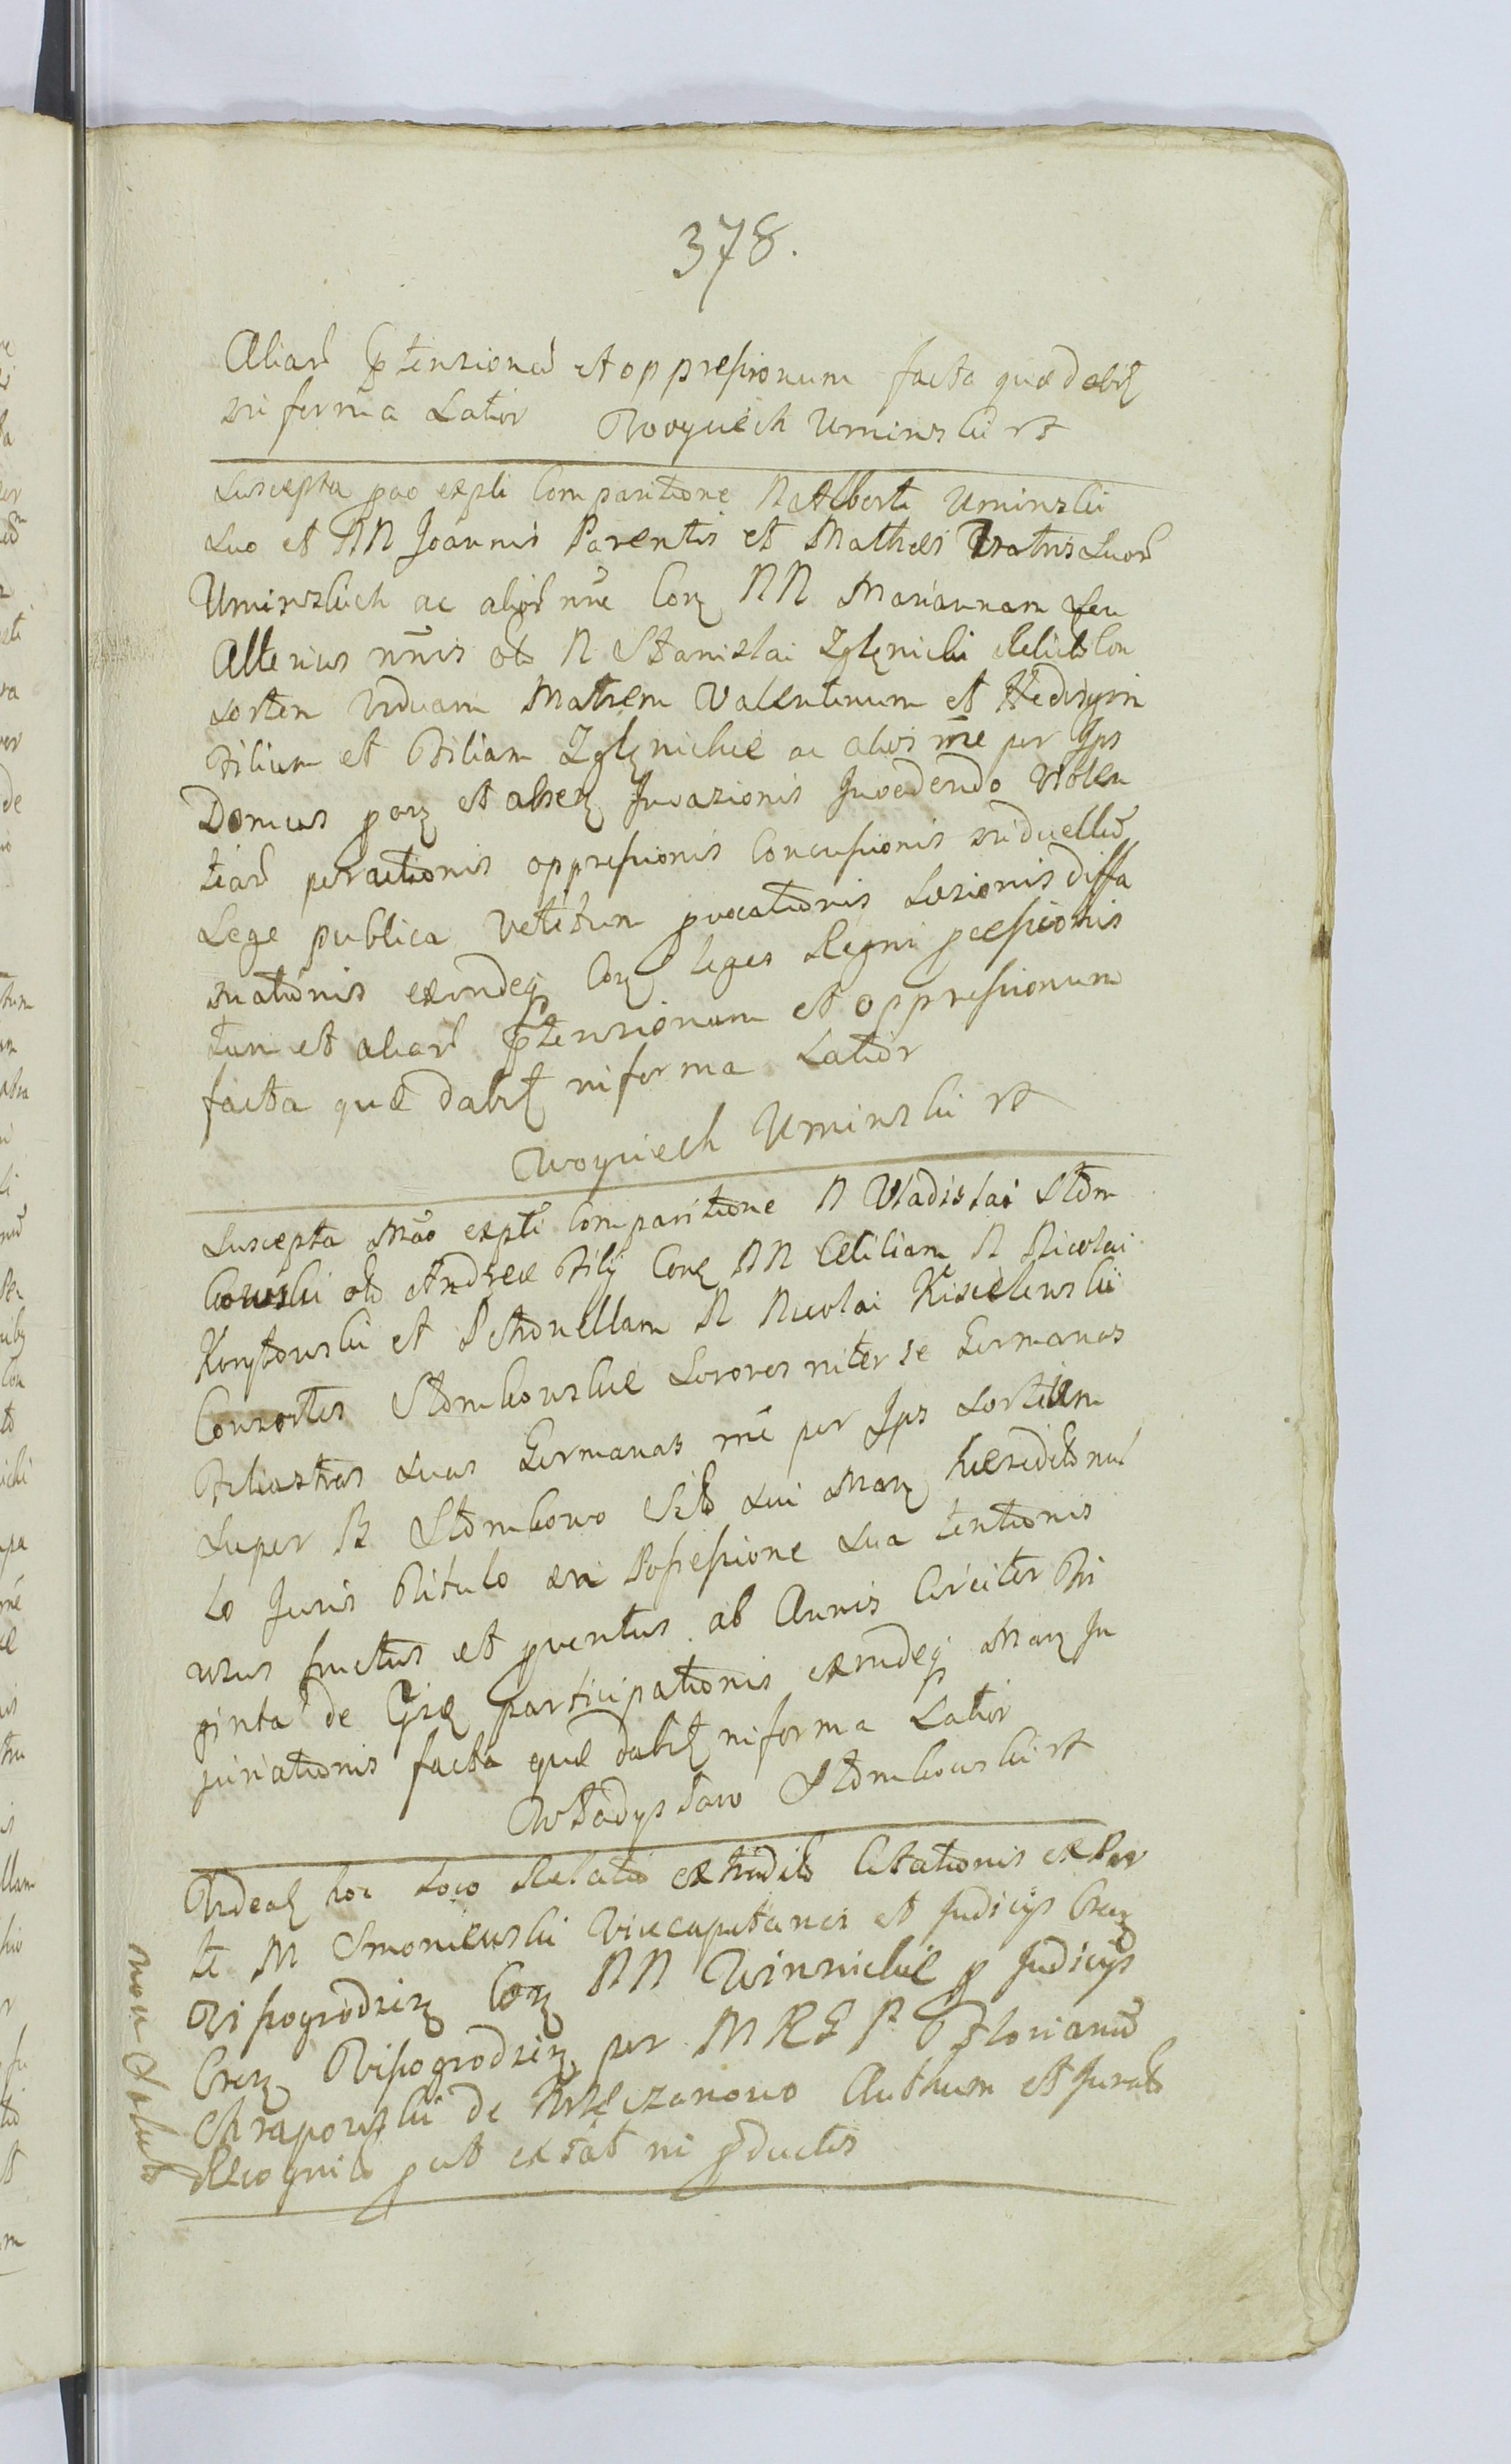 378.
Aliarū ꝑtensionū et oppressionum facta quæ dabitꝛ
in forma Latior Woyciech Uminski rt
Suscepta ꝓao expli Comparitione N Alberti Uminski
Suo et NN Joannis Parentis et Mathæi Fratris Suorū
Uminskich ac aliorū nne Conꝫ NN Mariannam seu
Alterius nn̄is olo N Stanislai Zglęnicki Relictā Con
sortem Viduam Matrem Valentinum et Hedvigim
Filium et Filiam Zglęnickie ac alios rn̄e per Ips
Domus et Invasionis Invadendo Violen
tiarū peractionis oppressionis Concussionis in duellū
Lege publica vetitum ꝓvocationis Læsionis diffa
mationis exindeqꝫ Conꝫ leges Regni ꝓcessionis
tum et aliarū ꝑtensionum et oppressionum
facta quæ dabitꝛ in forma Latior
Woyciech Uminski rt
Suscepta Mao expli Comparitione N Vladislai Słom
kowski olo Andreæ Filÿ Conꝫ NN Ceciliam N Nicolai
Korytowski et Petronellam N Nicolai Kisielewski
Consortes Słomkowskie Sorores inter se Germanas
Filiastras Suas Germanas rn̄e per Ips Sortium
Super B Słomkowo Sito Sui Manꝫ hæredito nul
lo Juris Titulo in Possessione Sua tentionis
usus fructus et ꝓventus ab Annis Circiter Tri
ginta de participationis exindeqꝫ Manꝫ In
juriationis facta quæ dabitꝛ in forma Latior
Władysław Słomkowski rt
Videatꝛ hoc Loco Relatio extradito Citationis ex Par
te M Smoniewski Vicecapitanei et Judicÿs Crenꝫ
Wissogrodzienꝫ Conꝫ NN Winnickie ꝑ Judicÿs
Crenꝫ Wissogrodzienꝫ per M R G P Florianū
Chrapowski de Krzęczanowo Authum et Jurato
Recognito ꝓut exstat in ꝓductis
non Solut